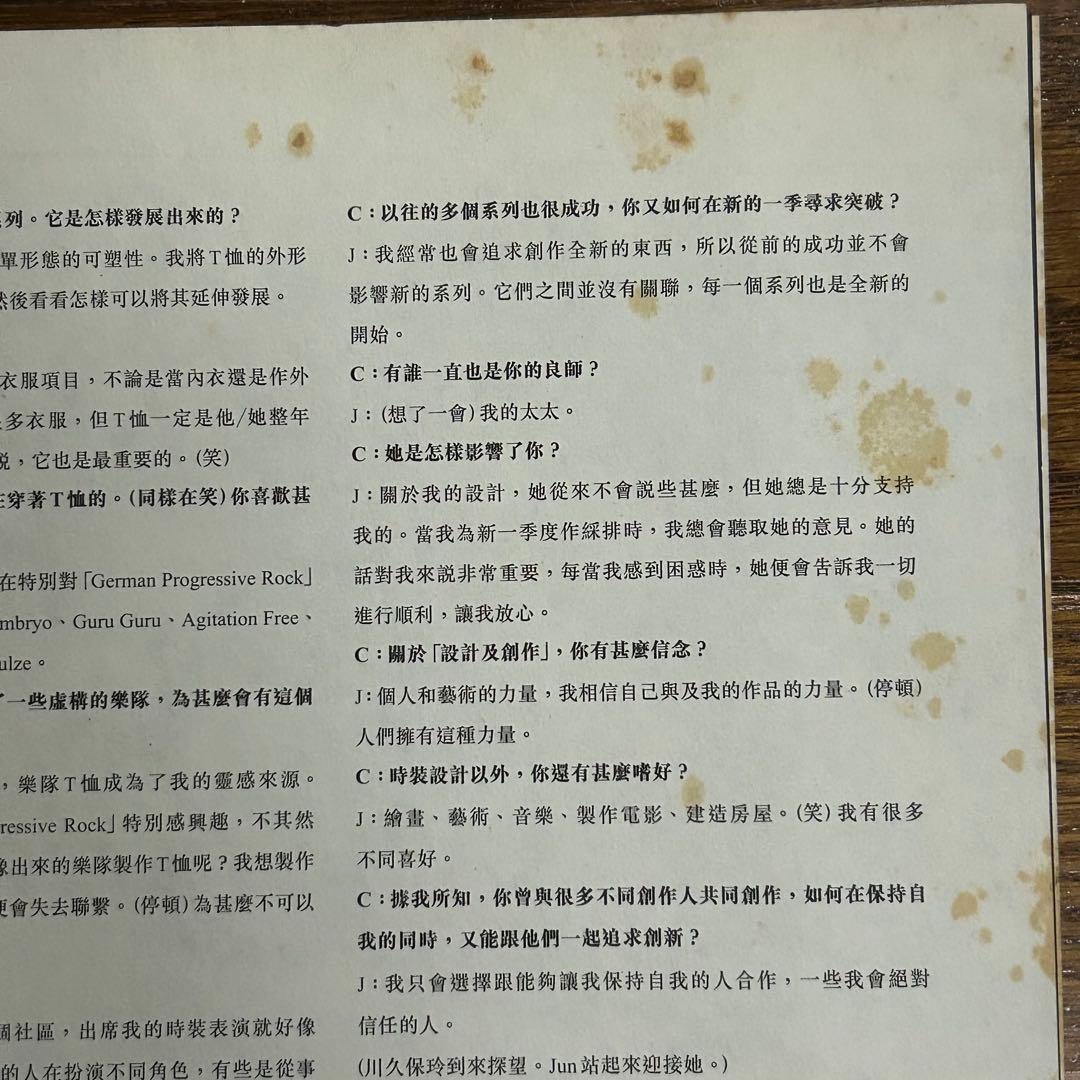 列。它是怎樣發展出來的？
單形態的可塑性。我將T恤的外形
然後看看怎樣可以將其延伸發展。
衣服項目，不論是當內衣還是作外
多衣服，但T恤一定是他/她整年
說，它也是最重要的。(笑)
在穿著T恤的。(同樣在笑)你喜歡甚
在特別對「German Progressive Rock」
mbryo、Guru Guru、Agitation Free、
ulze。
了一些虛構的樂隊，為甚麼會有這個
，樂隊T恤成為了我的靈感來源。
ressive Rock」特別感興趣，不其然
像出來的樂隊製作T恤呢？我想製作
便會失去聯繫。(停頓)為甚麼不可以
個社區，出席我的時裝表演就好像
的人在扮演不同角色，有些是從事
C：以往的多個系列也很成功，你又如何在新的一季尋求突破？
J：我經常也會追求創作全新的東西，所以從前的成功並不會
影響新的系列。它們之間並沒有關聯，每一個系列也是全新的
開始。
C：有誰一直也是你的良師？
J：(想了一會)我的太太。
C：她是怎樣影響了你？
J：關於我的設計，她從來不會說些甚麼，但她總是十分支持
我的。當我為新一季度作綵排時，我總會聽取她的意見。她的
話對我來說非常重要，每當我感到困惑時，她便會告訴我一切
進行順利，讓我放心。
C：關於「設計及創作」，你有甚麼信念？
J：個人和藝術的力量，我相信自己與及我的作品的力量。(停頓)
人們擁有這種力量。
C：時裝設計以外，你還有甚麼嗜好？
J：繪畫、藝術、音樂、製作電影、建造房屋。(笑)我有很多
不同喜好。
C：據我所知，你曾與很多不同創作人共同創作，如何在保持自
我的同時，又能跟他們一起追求創新？
J：我只會選擇跟能夠讓我保持自我的人合作，一些我會絕對
信任的人。
(川久保玲到來探望。Jun站起來迎接她。)